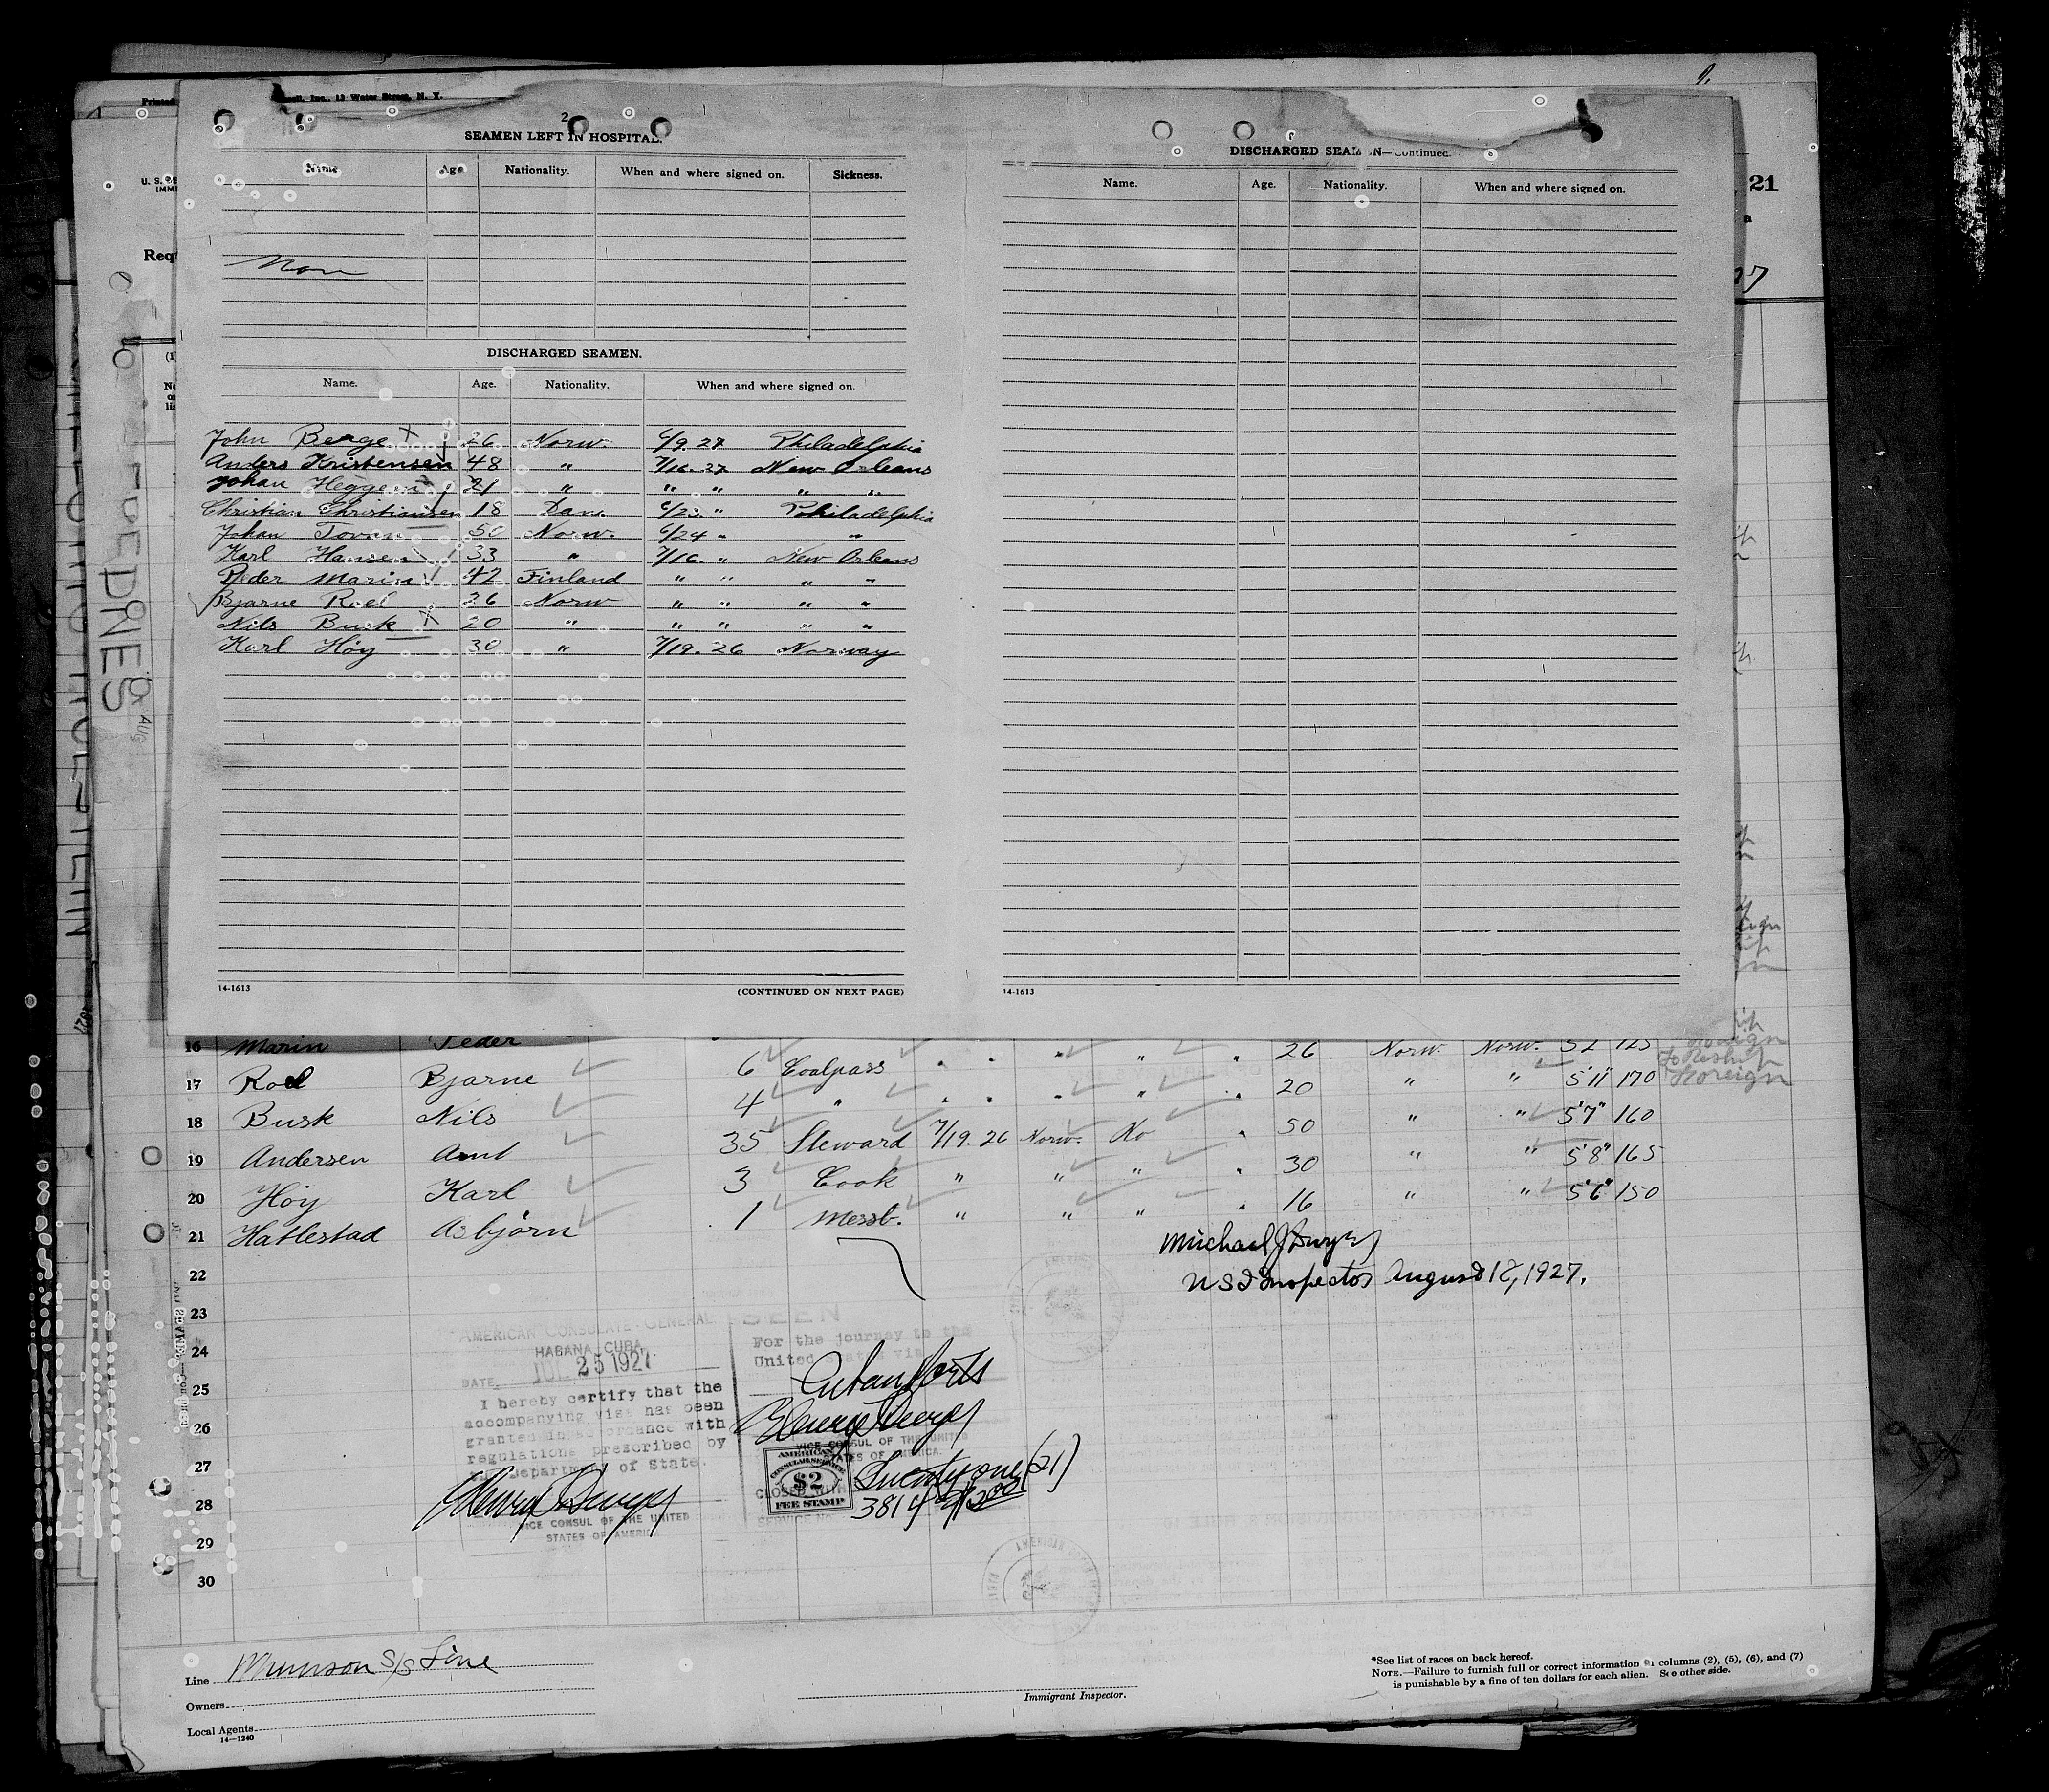 Printed
sell, Inc., 13 Water Street, N. Y.
2
SEAMEN LEFT IN HOSPITAL.
Name Age. Nationality. When and where signed on. Sickness.
Non
DISCHARGED SEAMEN.
Name. Age. Nationality. When and where signed on.
John Berge 26 Norw. 6/9.27 Philadelphia
Anders Kristensen 48 " 7/16.27 New Orleans
Johan Heggem 21 " " " " "
Christian Christiansen 18 Dan. 6/23. " Philadelphia
Johan Tovan 50 Norw. 6/24 " "
Karl Hansen 33 " 7/16. " New Orleans
Peder Marin 42 Finland " " " "
Bjarne Roel 26 Norw " " " "
Nils Busk 20 " " " " "
Karl Höy 30 " 7/19.26 Norway
14-1613 (CONTINUED ON NEXT PAGE)
DISCHARGED SEAMEN—Continued.
Name. Age. Nationality. When and where signed on.
14-1613
21
Requ
16 Marin Peder
17 Roel Bjarne 6 Coalpass " " " " " 26 Norw. Norw. 5'2 125
18 Busk Nils 4 " " " " " " 20 " " 5'11" 170
19 Andersen Arnt 35 Steward 7/19.26 Norw. No " 50 " " 5'7" 160
20 Höy Karl 3 Cook " " " " 30 " " 5'8" 165
21 Hatlestad Asbjörn 1 Messb. " " " " 16 " " 5'6" 150
To Reship Foreign
Michael J Dwyer
U S I Inspector August 18, 1927.
22
23
24
25
26
27
28
29
30
AMERICAN CONSULATE GENERAL
HABANA, CUBA.
DATE JUL 25 1927
I hereby certify that the
accompanying visa has been
granted in accordance with
regulations prescribed by
the Department of State.
VICE CONSUL OF THE UNITED
STATES OF AMERICA
SEEN
For the journey to the
United States via
Cuban Ports
VICE CONSUL OF THE UNITED
STATES OF AMERICA.
AMERICAN
CONSULAR SERVICE
$2
FEE STAMP
Twenty one (21)
3814
Line Munson S/S Line
Owners
Local Agents
14—1240
Immigrant Inspector.
*See list of races on back hereof.
NOTE.—Failure to furnish full or correct information in columns (2), (5), (6), and (7)
is punishable by a fine of ten dollars for each alien. See other side.